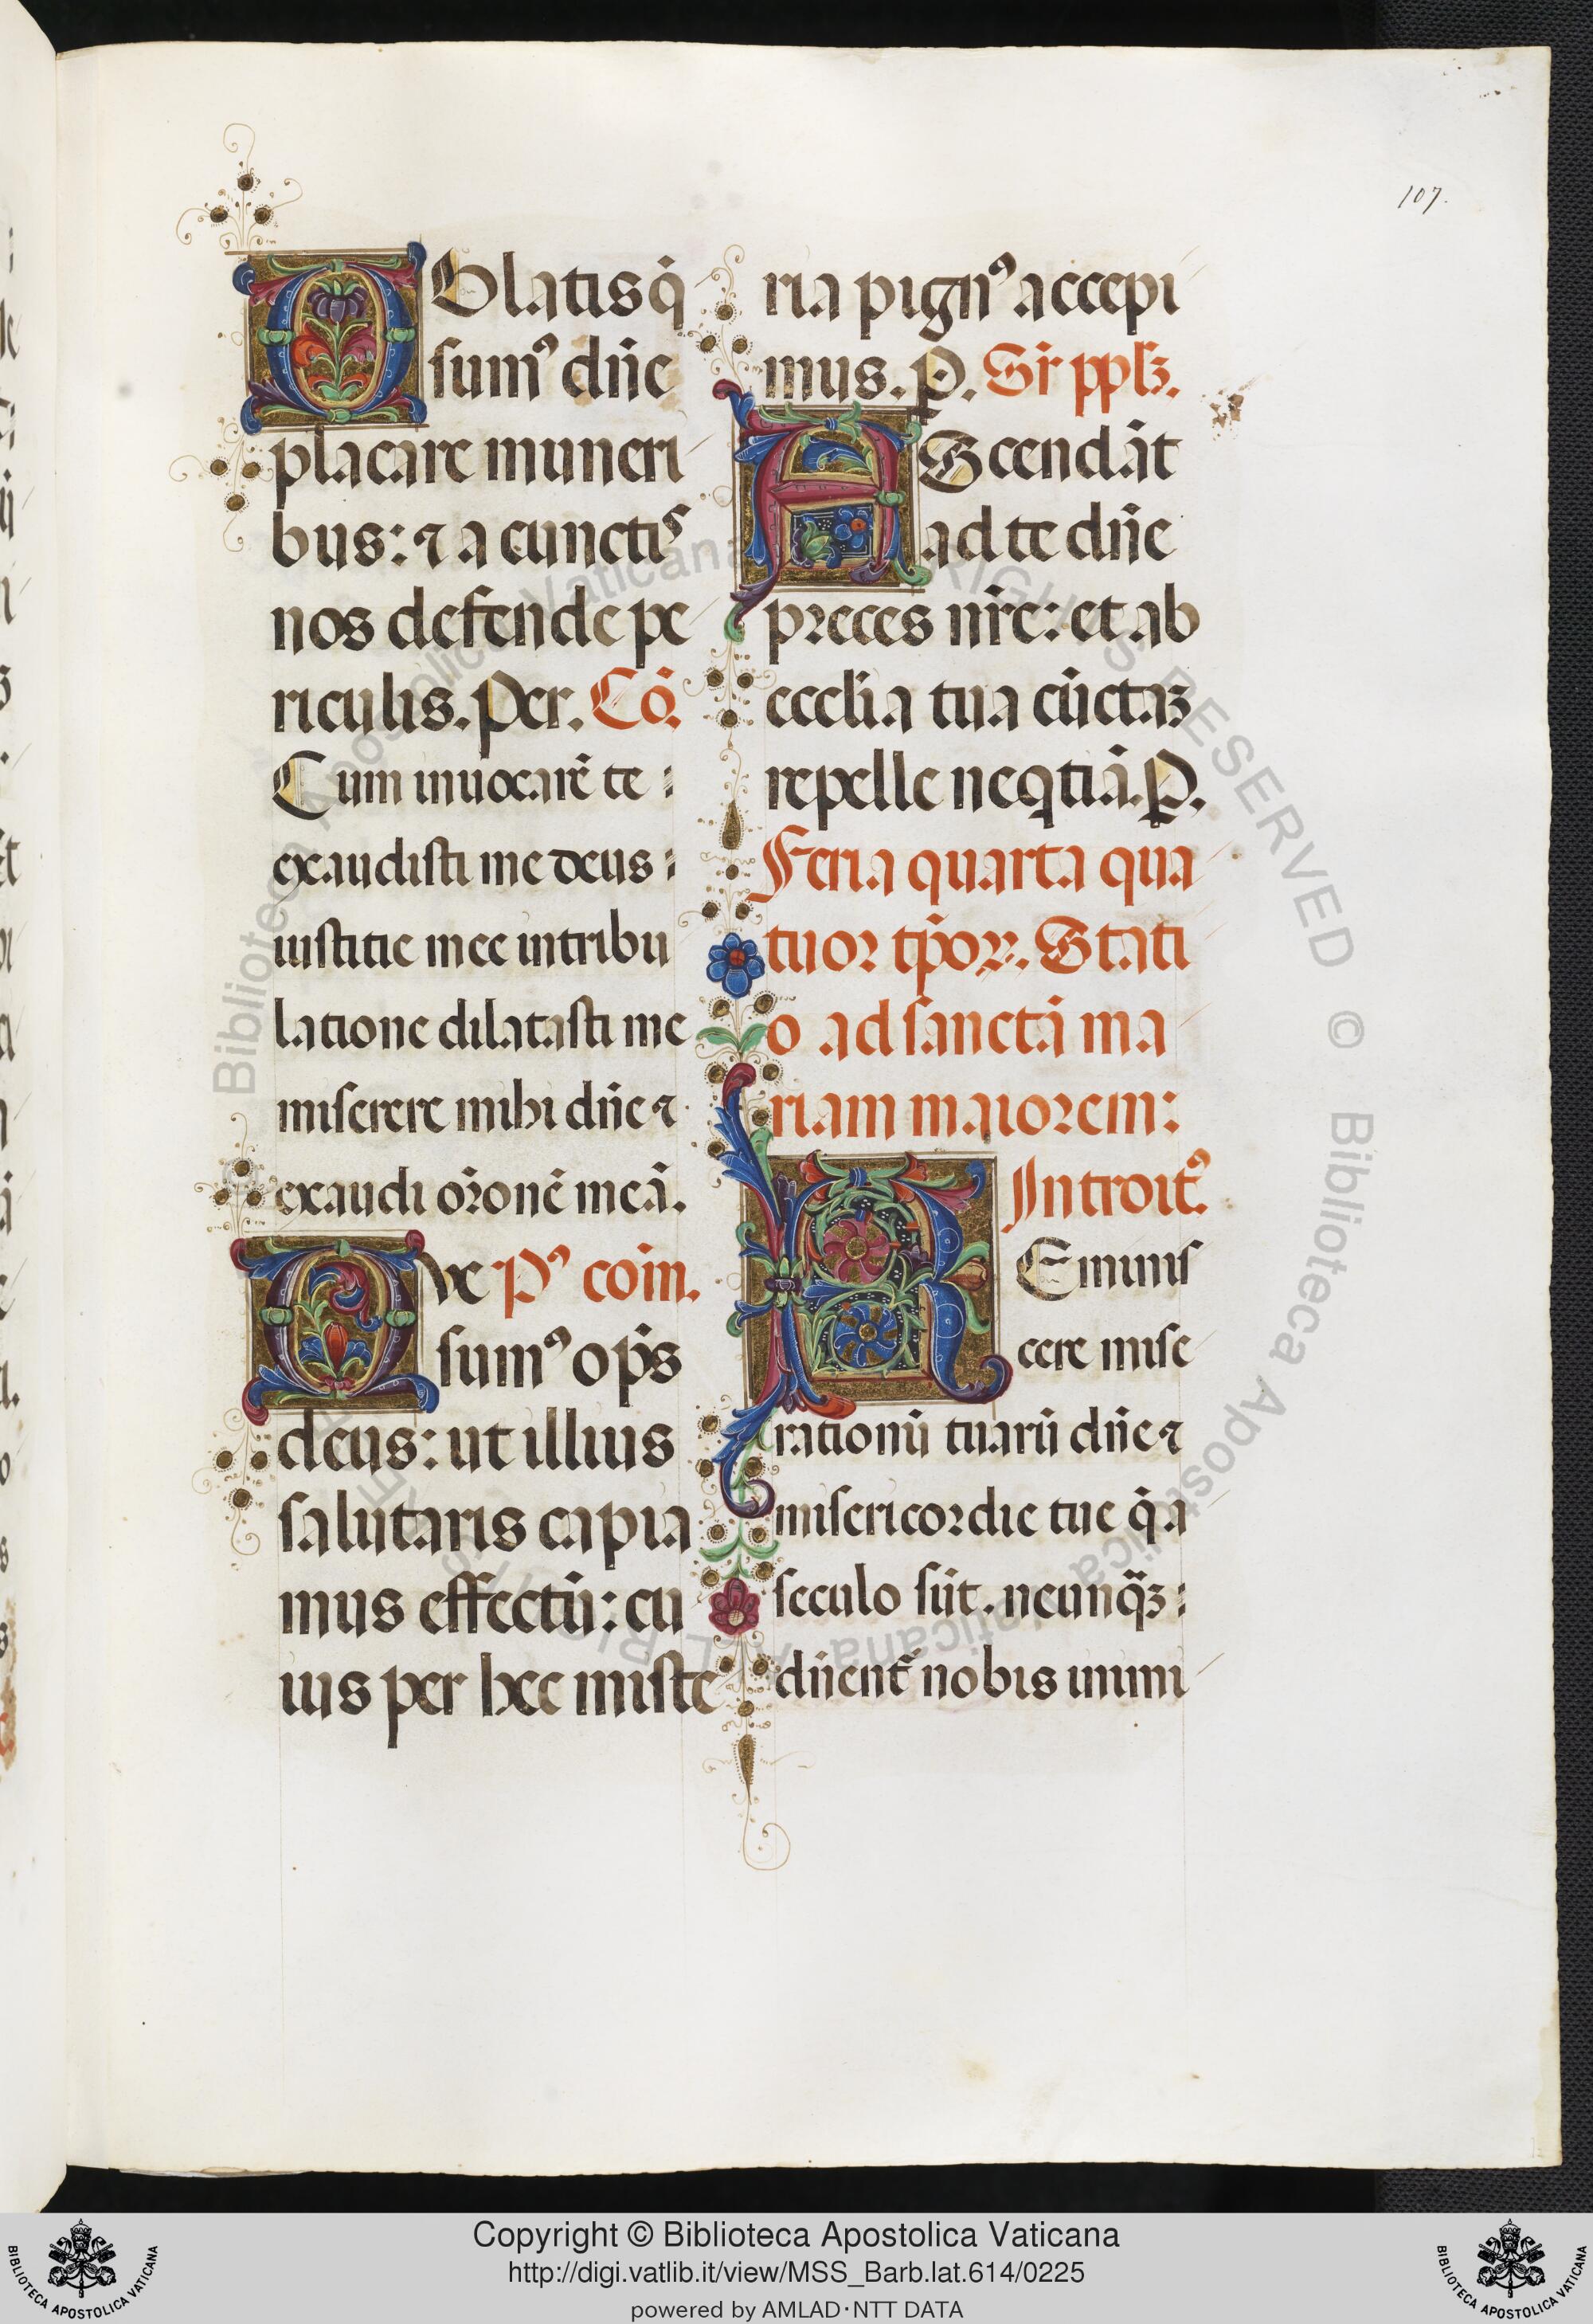 107.
OBlatis q̃
sumꝰ dñe
placare muneri
bus: ⁊ a cunctis
nos defende pe
riculis. Per. Cõ.
Cum inuocarẽ te
exaudisti me deus
iustitie mee in tribu
latione dilatasti me
miserere mihi dñe ⁊
exaudi oꝛonẽ meã.
QVe Pꝰ coim.
sumꝰ op̃s
deus: ut illius
salutaris capia
mus effectũ: cu
ius per hec miste
ria pignꝰ accepi
mus. P. Sr̃ pplꝫ.
AScendãt
ad te dñe
preces nr̃e: et ab
ecclia tua cũctaꝫ
repelle neqtiã. P.
Feria quarta qua
tuoꝛ tp̃oꝝ. Stati
o ad sanctã ma
riam maioꝛem:
Introitꝰ.
REminis
cere mise
rationũ tuarũ dñe ⁊
misericoꝛdie tue q̃ a
seculo sũt. ne unq̃ꝫ
dñent̃ nobis inimi
Biblioteca Apostolica Vaticana ALL RIGHTS RESERVED © Biblioteca Apostolica Vaticana ALL RIGHTS RESERVED ©
Copyright © Biblioteca Apostolica Vaticana
http://digi.vatlib.it/view/MSS_Barb.lat.614/0225
powered by AMLAD·NTT DATA
BIBLIOTECA APOSTOLICA VATICANA
BIBLIOTECA APOSTOLICA VATICANA